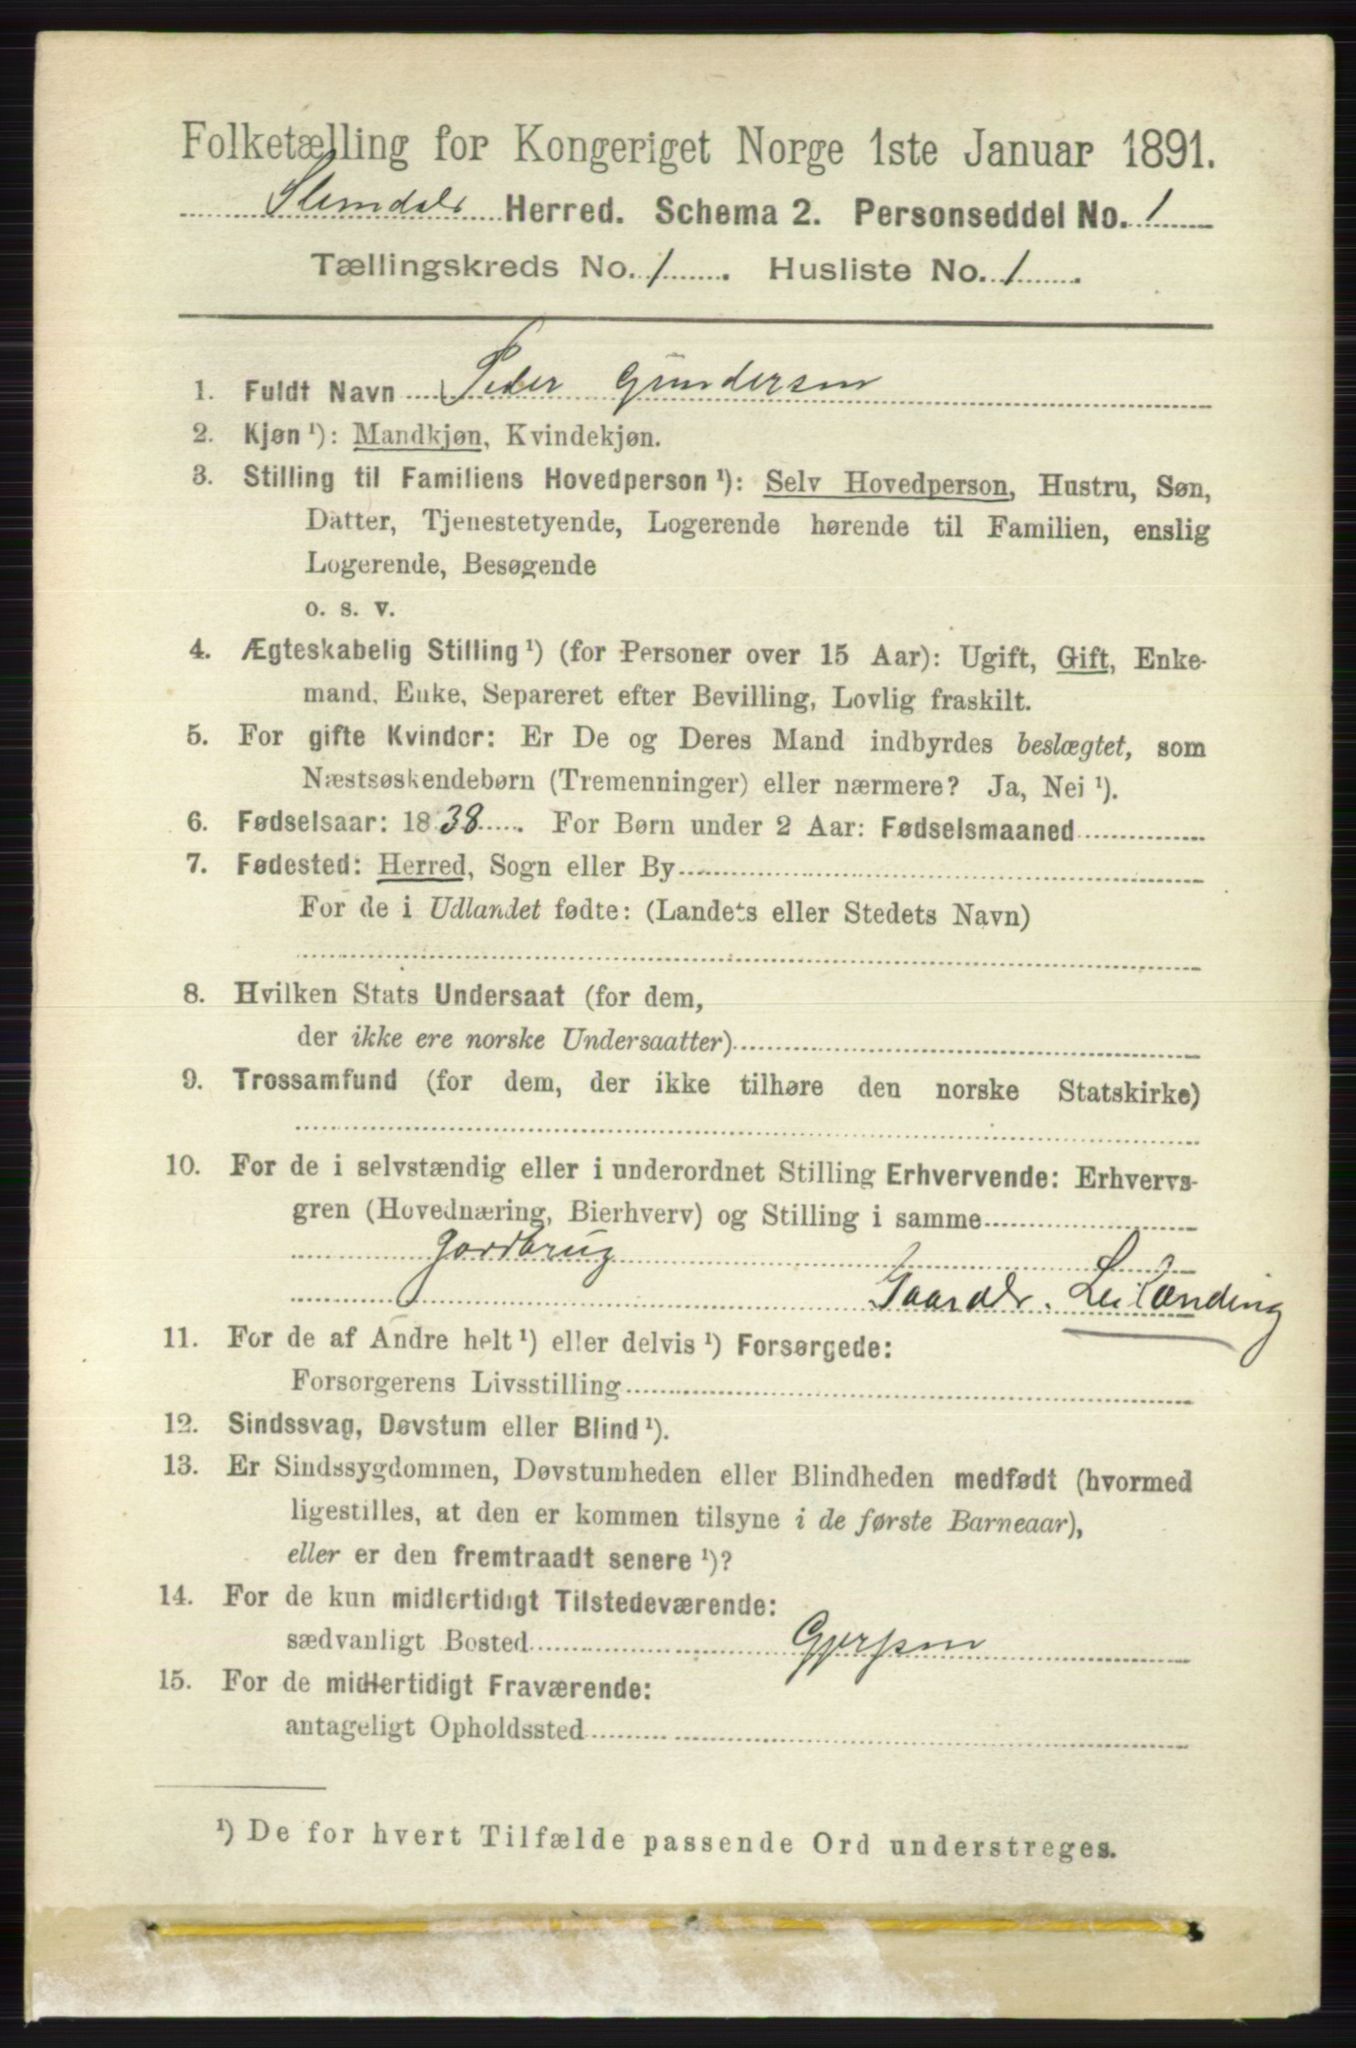 Folketælling for Kongeriget Norge 1ste Januar 1891.
Slemdals Herred. Schema 2. Personseddel No. 1
Tællingskreds No. 1. Husliste No. 1.
1. Fuldt Navn Peder Gundersen
2. Kjøn ¹): Mandkjøn, Kvindekjøn.
3. Stilling til Familiens Hovedperson ¹): Selv Hovedperson, Hustru, Søn,
Datter, Tjenestetyende, Logerende hørende til Familien, enslig
Logerende, Besøgende
o. s. v.
4. Ægteskabelig Stilling ¹) (for Personer over 15 Aar): Ugift, Gift, Enke-
mand, Enke, Separeret efter Bevilling, Lovlig fraskilt.
5. For gifte Kvinder: Er De og Deres Mand indbyrdes beslægtet, som
Næstsøskendebørn (Tremenninger) eller nærmere? Ja, Nei ¹).
6. Fødselsaar: 1838. For Børn under 2 Aar: Fødselsmaaned
7. Fødested: Herred, Sogn eller By
For de i Udlandet fødte: (Landets eller Stedets Navn)
8. Hvilken Stats Undersaat (for dem,
der ikke ere norske Undersaatter)
9. Trossamfund (for dem, der ikke tilhøre den norske Statskirke)
10. For de i selvstændig eller i underordnet Stilling Erhvervende: Erhvervs-
gren (Hovednæring, Bierhverv) og Stilling i samme
Gordbrug
Gaardbr. Leilænding
11. For de af Andre helt ¹) eller delvis ¹) Forsørgede:
Forsørgerens Livsstilling
12. Sindssvag, Døvstum eller Blind ¹).
13. Er Sindssygdommen, Døvstumheden eller Blindheden medfødt (hvormed
ligestilles, at den er kommen tilsyne i de første Barneaar),
eller er den fremtraadt senere ¹)?
14. For de kun midlertidigt Tilstedeværende:
sædvanligt Bosted Gjerpen
15. For de midlertidigt Fraværende:
antageligt Opholdssted
¹) De for hvert Tilfælde passende Ord understreges.